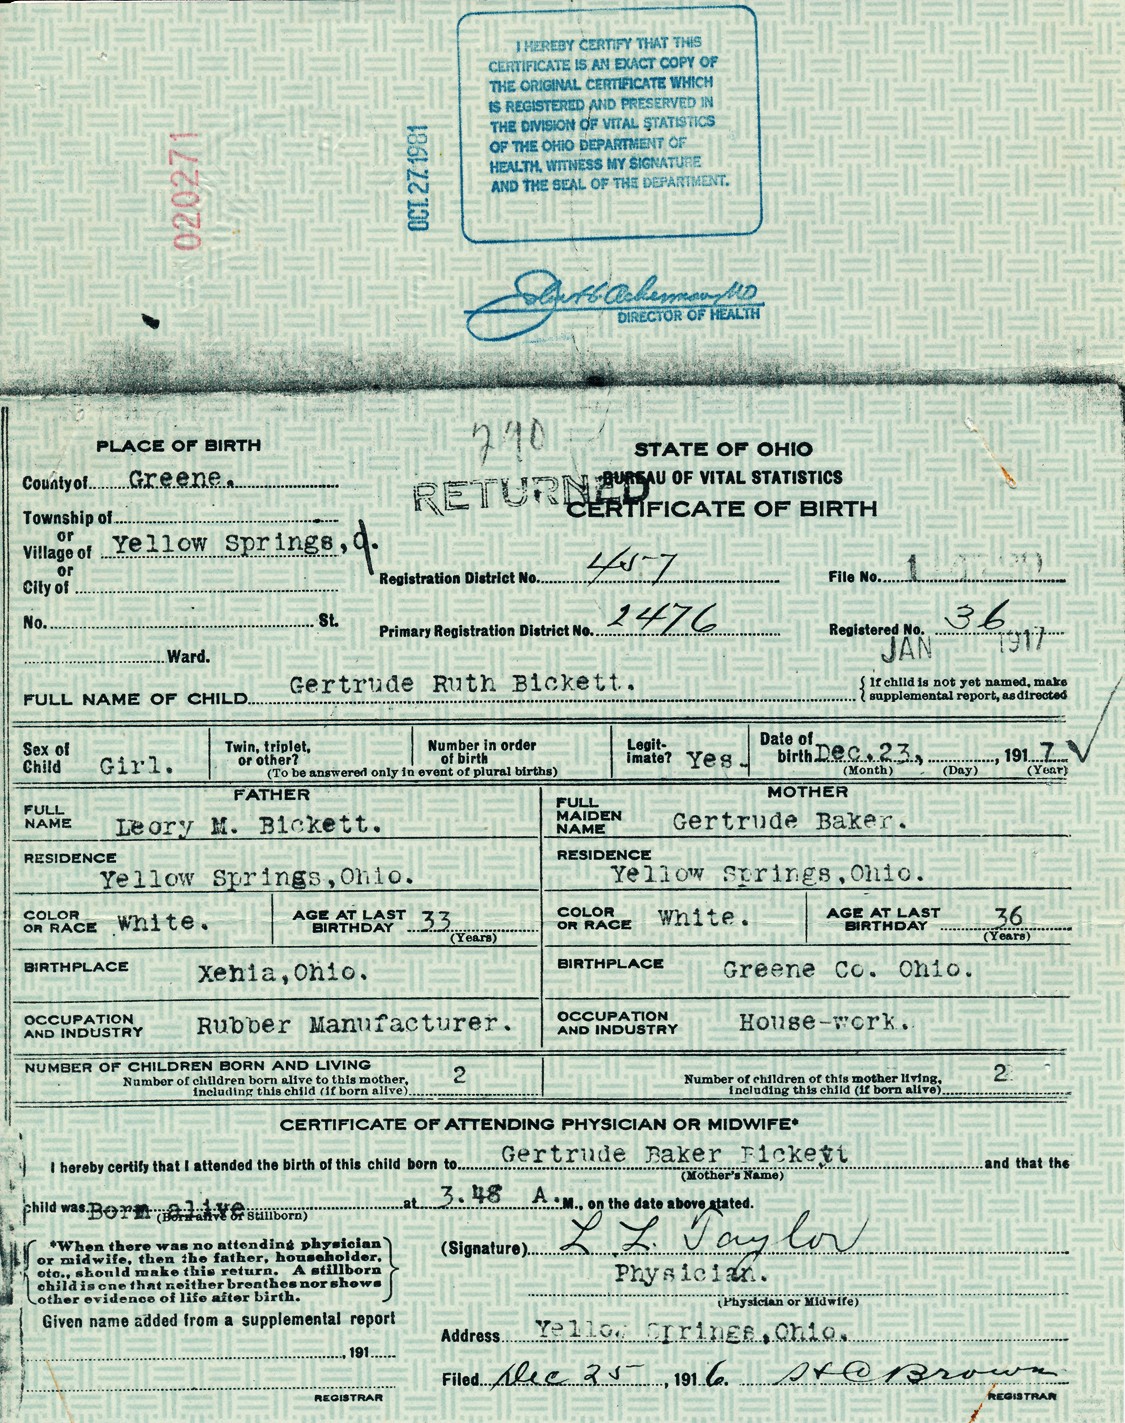 I HEREBY CERTIFY THAT THIS
CERTIFICATE IS AN EXACT COPY OF
THE ORIGINAL CERTIFICATE WHICH
IS REGISTERED AND PRESERVED IN
THE DIVISION OF VITAL STATISTICS
OF THE OHIO DEPARTMENT OF
HEALTH, WITNESS MY SIGNATURE
AND THE SEAL OF THE DEPARTMENT.
020271
OCT. 27. 1981
DIRECTOR OF HEALTH
790
PLACE OF BIRTH
STATE OF OHIO
BUREAU OF VITAL STATISTICS
RETURNED
CERTIFICATE OF BIRTH
County of Greene.
Township of
or
Village of Yellow Springs, O.
or
City of
Registration District No. 457
File No. 1
No. St.
Primary Registration District No. 2476
Registered No. 36
JAN 1917
Ward.
FULL NAME OF CHILD Gertrude Ruth Bickett.
{ If child is not yet named, make
supplemental report, as directed
Sex of Child Girl.
Twin, triplet, or other?
Number in order of birth
(To be answered only in event of plural births)
Legitimate? Yes.
Date of birth Dec. 23, , 1917
(Month) (Day) (Year)
FATHER
MOTHER
FULL NAME Leory M. Bickett.
FULL MAIDEN NAME Gertrude Baker.
RESIDENCE
Yellow Springs, Ohio.
RESIDENCE
Yellow Springs, Ohio.
COLOR OR RACE White.
AGE AT LAST BIRTHDAY 33
(Years)
COLOR OR RACE White.
AGE AT LAST BIRTHDAY 36
(Years)
BIRTHPLACE Xenia, Ohio.
BIRTHPLACE Greene Co. Ohio.
OCCUPATION AND INDUSTRY Rubber Manufacturer.
OCCUPATION AND INDUSTRY House-work.
NUMBER OF CHILDREN BORN AND LIVING
Number of children born alive to this mother,
including this child (if born alive) 2
Number of children of this mother living,
including this child (if born alive) 2
CERTIFICATE OF ATTENDING PHYSICIAN OR MIDWIFE*
I hereby certify that I attended the birth of this child born to Gertrude Baker Bickett and that the
(Mother's Name)
child was Born alive at 3.48 A. M., on the date above stated.
(Born alive or Stillborn)
*When there was no attending physician
or midwife, then the father, householder,
etc., should make this return. A stillborn
child is one that neither breathes nor shows
other evidence of life after birth.
(Signature) L L Taylor
Physician.
(Physician or Midwife)
Given name added from a supplemental report
, 191
REGISTRAR
Address Yellow Springs, Ohio.
Filed Dec 25, 1916. H C Brown
REGISTRAR